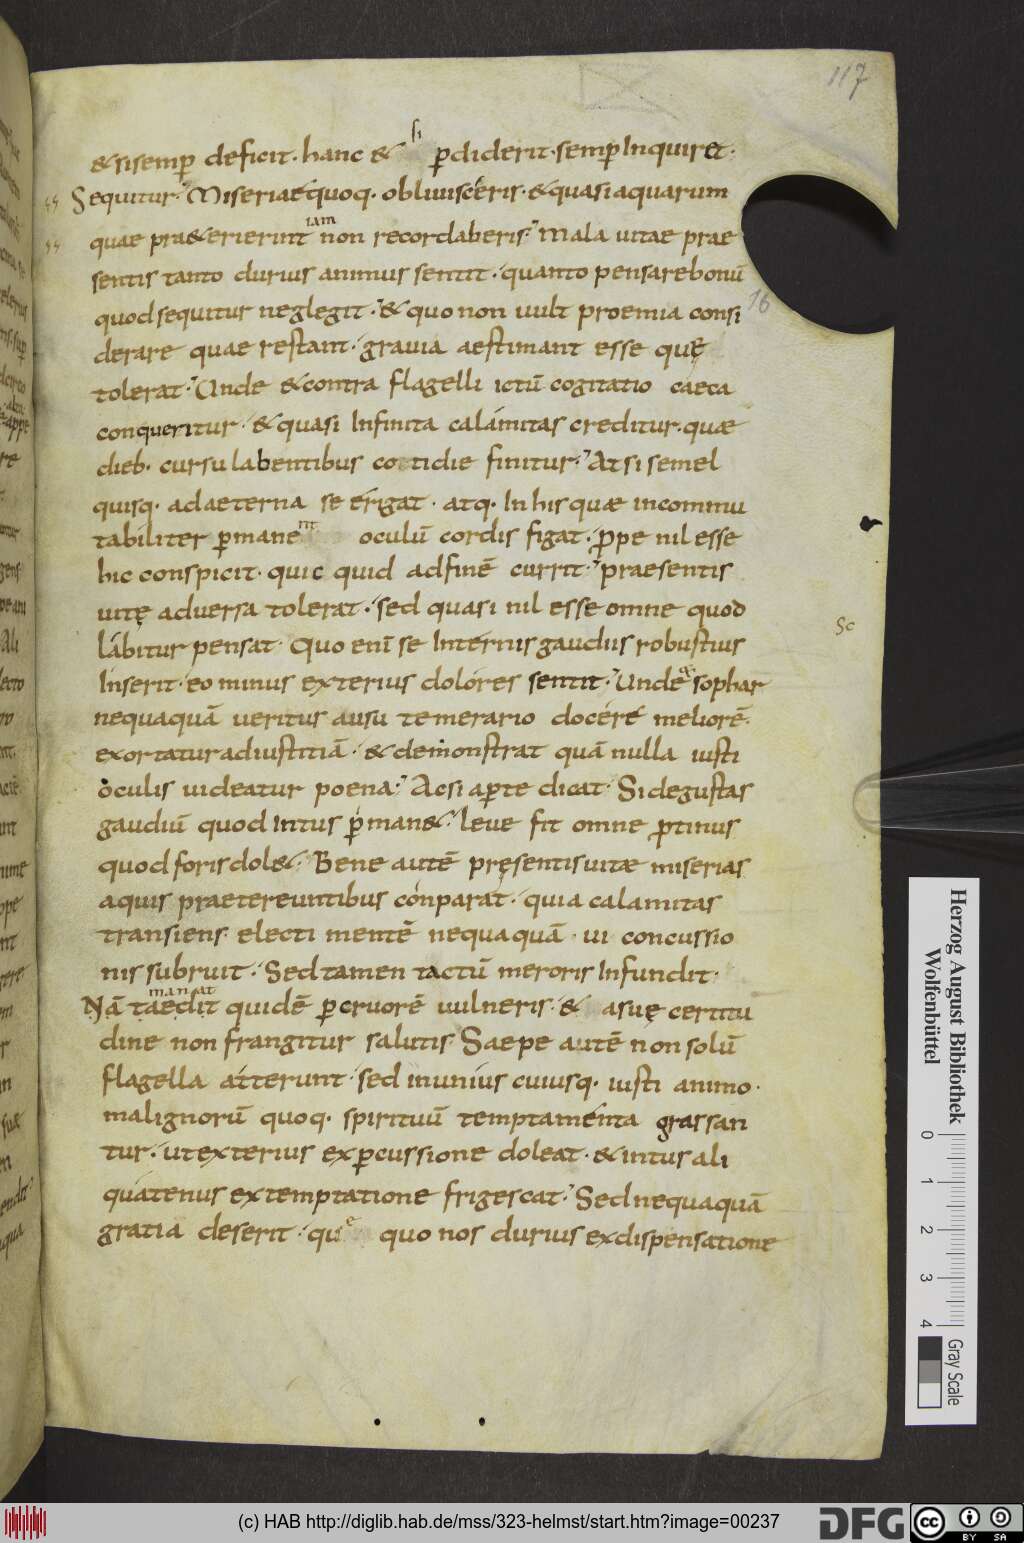 117
si
&sisemꝑ deficit· hanc & ꝑdiderit· semꝑ Inquiret·
Sequitur· Miseriae quoq· obliuisceris· & quasi aquarum
iam
quae prae&erierint non recordaberis· Mala uitae prae
sentis tanto durius animus sentit· quanto pensare bonū
16
quod sequitur neglegit· & quo non uult proemia consi
derare quae restant· grauia aestimant esse quę
tolerat· Unde & contra flagelli ictū cogitatio caeca
conqueritur· & quasi Infinita calamitas creditur· quae
dieb· cursu labentibus cotidie finitur· At si semel
quisq· ad aeterna se erigat· atq· In his quae incommu
nt
tabiliter ꝑmane oculū cordis figat· ꝓpe nil esse
hic conspicit· quic quid ad finē currit· praesentis
uitę aduersa tolerat· sed quasi nil esse omne quod
Sc
labitur pensat· Quo enī se Internis gaudiis robustius
Inserit· eo minus exterius dolores sentit· Unde & sophar
nequaquā ueritus ausu temerario docere meliorē·
exortatur ad iustitiā· & demonstrat quā nulla iusti
oculis uideatur poena· Ac si aꝑte dicat· Si degustas
gaudiū quod Intus ꝑman&· leue fit omne ꝓtinus
quod foris dol&· Bene autē pręsentis uitae miserias
aquis praetereuntibus conparat· quia calamitas
transiens electi mentē nequaquā ui concussio
nis subruit· Sed tamen tactū meroris Infundit·
manat
Nā taedit quidē ꝑ cruorē uulneris· & a suę certitu
dine non frangitur salutis· Saepe autē non solū
flagella atterunt· sed inunius cuiusq· iusti animo·
malignorū quoq· spirituū temptamenta grassan
tur· ut exterius ex ꝑcussione doleat· & intus ali
quatenus ex temptatione frigescat· Sed nequaquā
gratia deserit· quę quo nos durius ex dispensatione
Herzog August Bibliothek
Wolfenbüttel
0 1 2 3 4
Gray Scale
(c) HAB http://diglib.hab.de/mss/323-helmst/start.htm?image=00237
DFG
cc BY SA